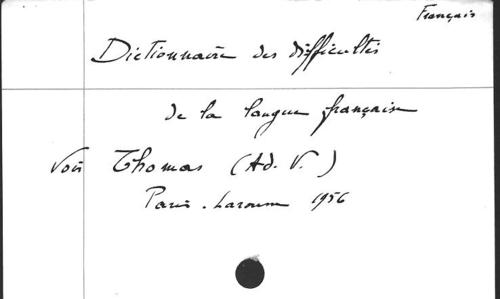 Français
Dictionnaire des difficultés
de la langue française
Voir Thomas (Ad. V.)
Paris. Larousse 1956